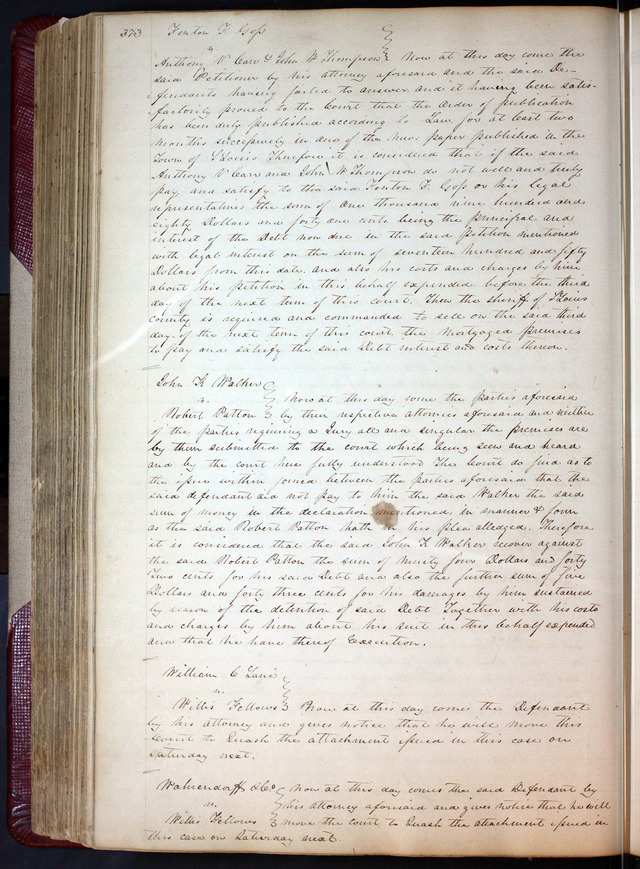 373 Fenton F. Goss
vs
Anthony V Carr & John W Thompson Now at this day come the
said Petitioner by his attorney aforesaid and the said De-
fendants having failed to answer and it having been satis-
factorily proved to the Court that the order of publication
has been duly published according to Law, for at least two
months successively in one of the News paper published in the
Town of St Louis Therefore it is considered that if the said
Anthony V Carr and John W Thompson do not well and truly
pay and satisfy to the said Fenton F. Goss or his legal
representatives the sum of One thousand nine hundred and
eighty Dollars and forty one cents being the principal and
interest of the Debt now due in the said petition mentioned
with legal interest on the sum of seventeen hundred and fifty
Dollars from this date and also his costs and charges by him
about his petition in this behalf expended before the third
day of the next term of this court. Then the sheriff of St Louis
County is required and commanded to sell on the said third
day of the next term of this court the Mortgaged premises
to pay and satisfy the said Debt interest and costs thereon.
John K Walker
vs.
Robert Patton Now at this day come the parties aforesaid
by their respective attornies aforesaid and neither
of the parties requiring a Jury all and singular the premises are
by them submitted to the court which being seen and heard
and by the court here fully understood The Court do find as to
the issue within joined between the parties aforesaid that the
said defendant did not pay to him the said Walker the said
sum of money in the declaration mentioned in manner & form
as the said Robert Patton hath in his plea alledged. Therefore
it is considered that the said John K Walker recover against
the said Robert Patton the sum of Ninety four Dollars and forty
Two cents for his said Debt and also the further sum of five
Dollars and forty three cents for his damages by him sustained
by reason of the detention of said Debt Together with his costs
and charges by him about his suit in this behalf expended
and that he have thereof Execution.
William C Lane
vs.
Willis Fellows Now at this day comes the Defendant
by his attorney and gives notice that he will move this
Court to Quash the attachment issued in this case on
Saturday next.
Wahrendorff & Co Now at this day comes the said Defendant by
vs. his attorney aforesaid and gives notice that he will
Willis Fellows move the court to Quash the attachment issued in
this case on Saturday next.